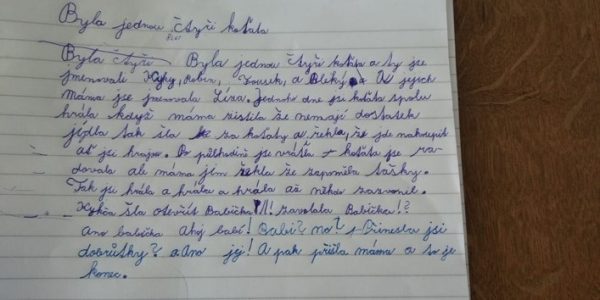 Byla jednou čtyři koťata
Byla čtyři Byla jednou čtyři koťata a ty se
jmenovali Kyky, Robin, Fousek, a Bleký A jejich
máma jse jmenovala Líza. Jednoho dne jsi koťata spolu
hrála když máma zistila že nemají dostatek
jídla tak šla za koťaty a řekla, že jde nakoupit
ať jsi hrajou. Po půlhodině se vrátila koťata se ra-
dovala ale máma jim řekla že zapoměla tašky.
Tak jsi hrála a hrála a hrála až někdo zazvonil.
šla otevřít Babička!!! zavolala Babička!?
Ano babička Ahoj babi! Babi? no? Přinesla jsi
dobrůtky? Ano jej! A pak přišla máma a to je
konec.